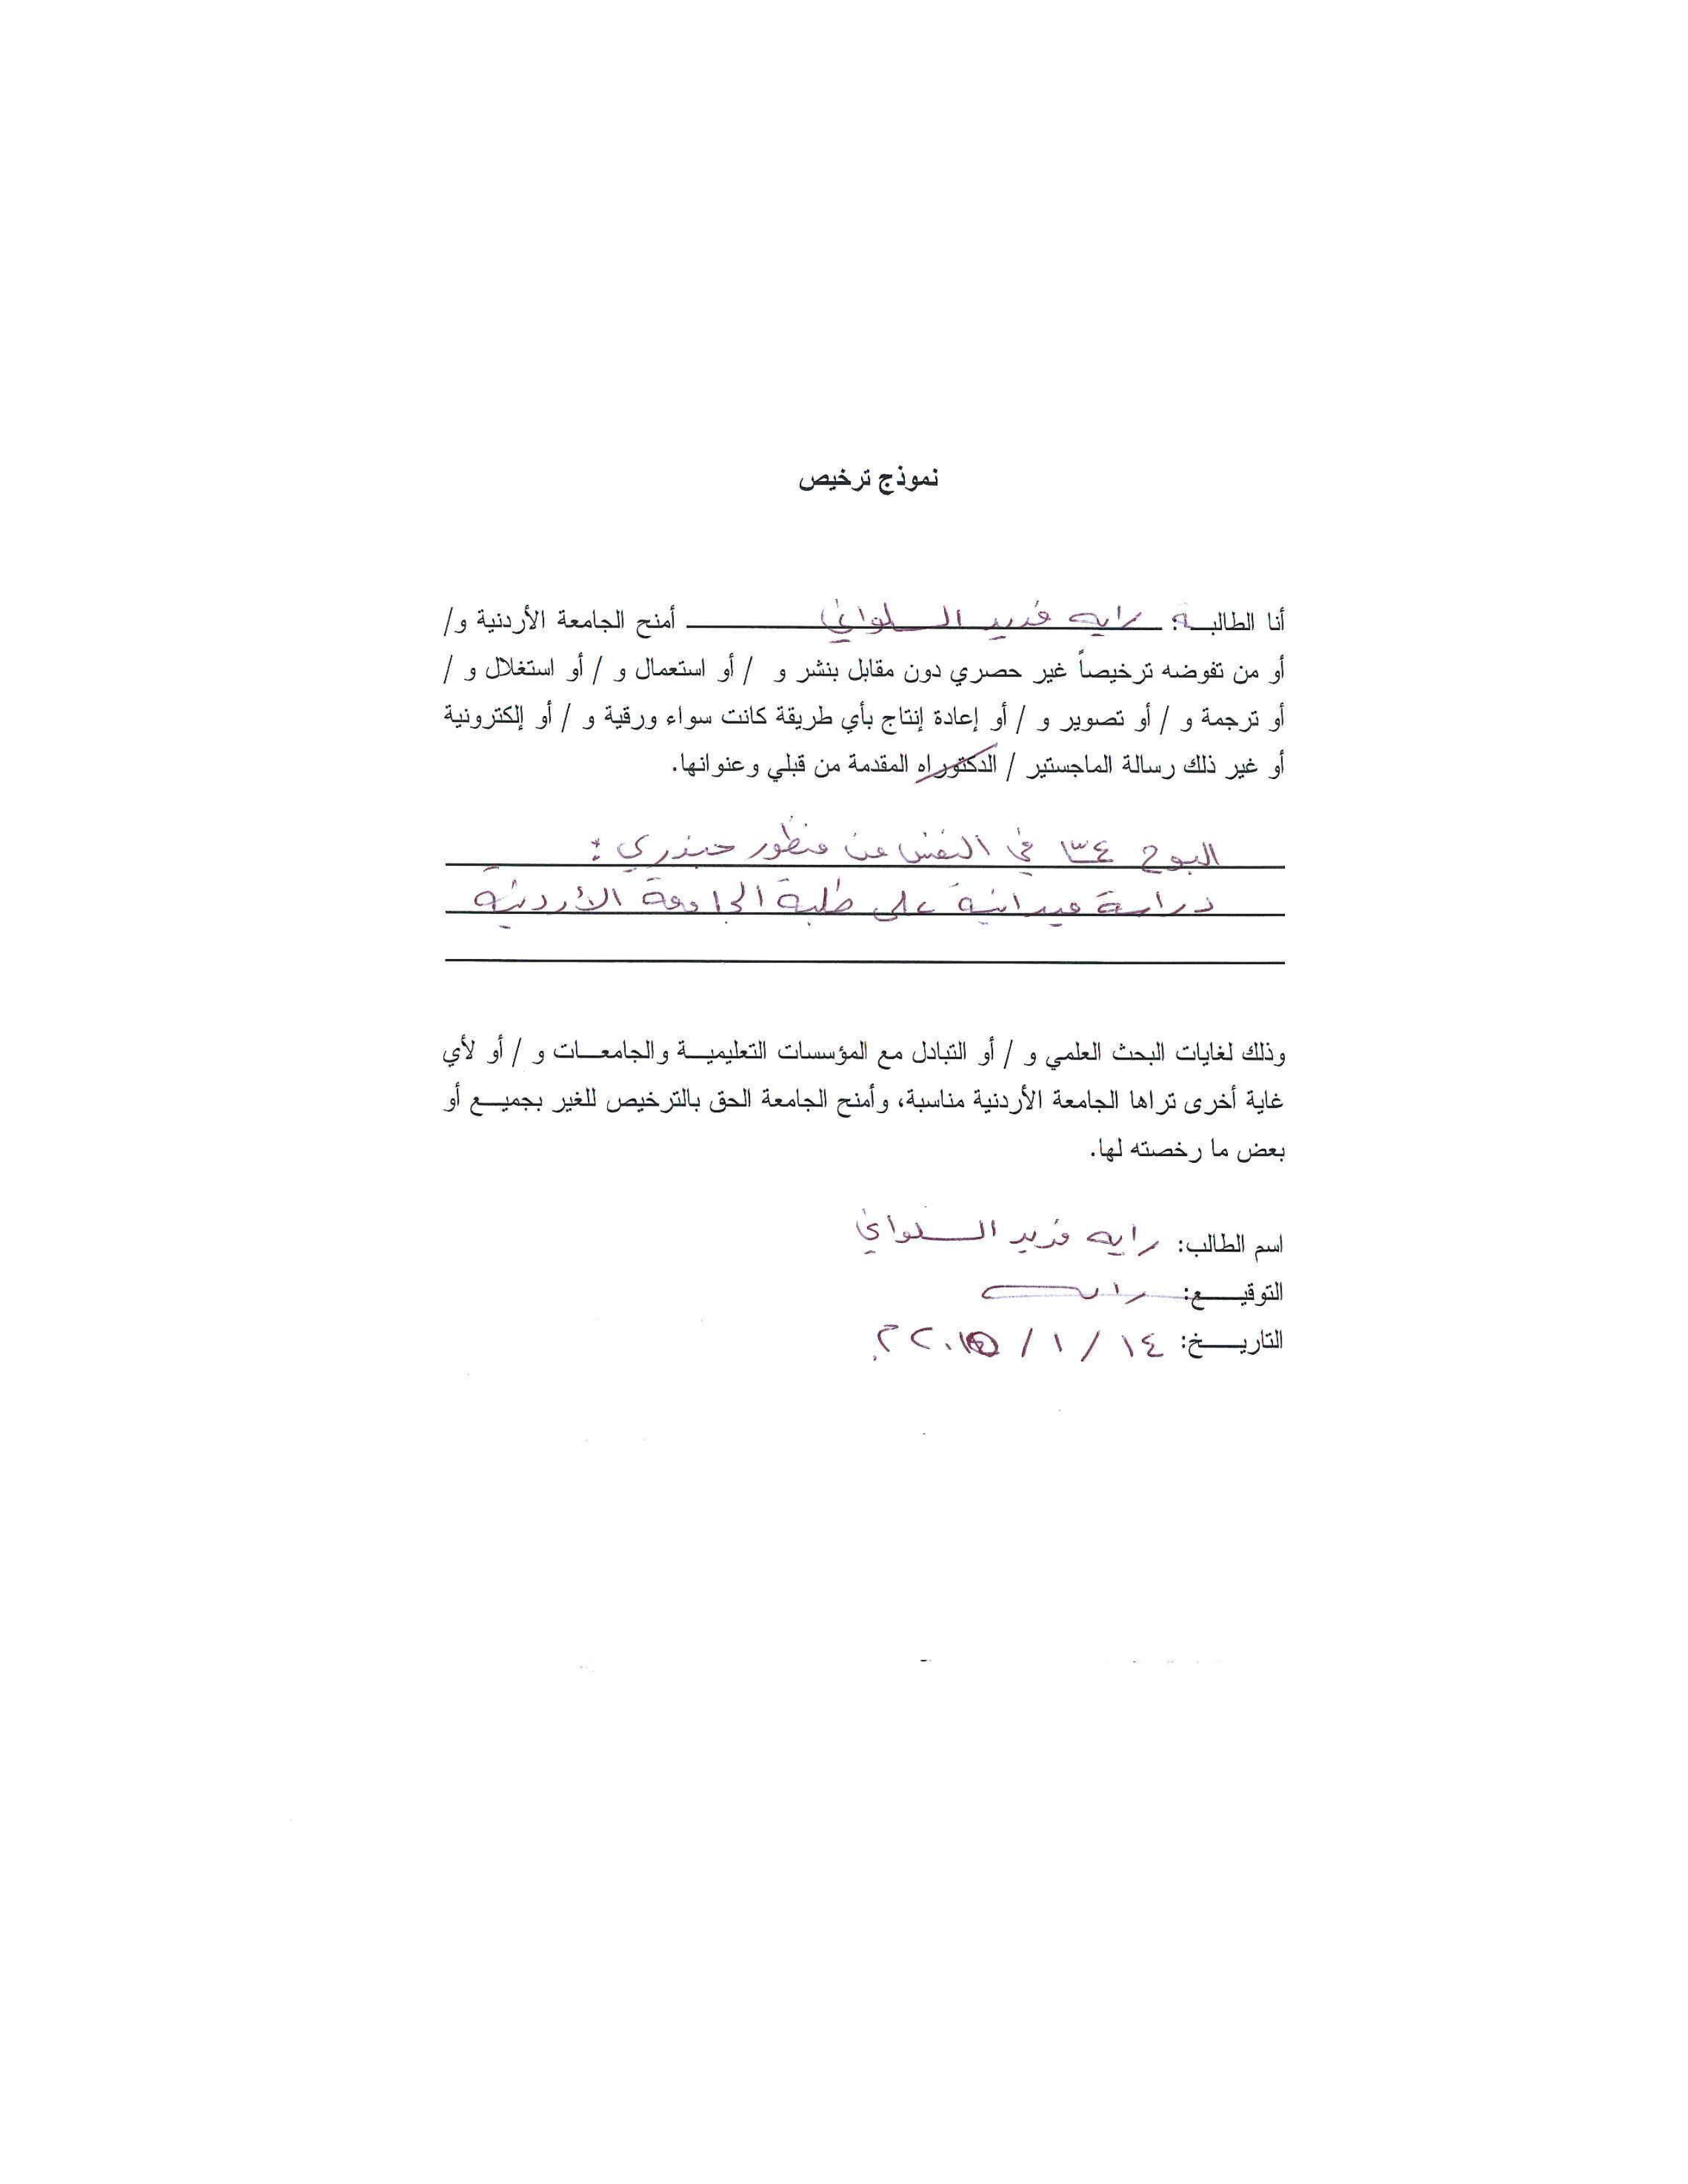 نموذج ترخيص
أنا الطالبـة: رايه فريد السلواني أمنح الجامعة الأردنية و/
أو من تفوضه ترخيصاً غير حصري دون مقابل بنشر و / أو استعمال و / أو استغلال و /
أو ترجمة و / أو تصوير و / أو إعادة إنتاج بأي طريقة كانت سواء ورقية و / أو إلكترونية
أو غير ذلك رسالة الماجستير / الدكتوراه المقدمة من قبلي وعنوانها.
البوح في النفس من منظور جندري:
دراسة ميدانية على طلبة الجامعة الأردنية
وذلك لغايات البحث العلمي و / أو التبادل مع المؤسسات التعليميـة والجامعـات و / أو لأي
غاية أخرى تراها الجامعة الأردنية مناسبة، وأمنح الجامعة الحق بالترخيص للغير بجميـع أو
بعض ما رخصته لها.
اسم الطالب: رايه فريد السلواني
التوقيـع: رايه
التاريـخ: ١٤ / ١ /